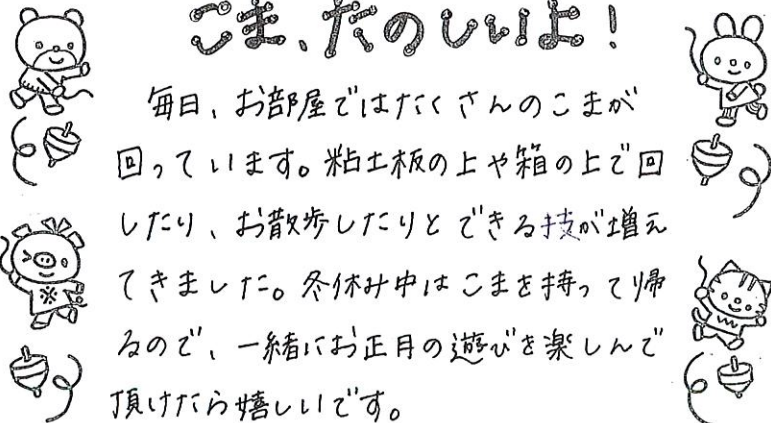 こま、たのしいよ!
毎日、お部屋ではたくさんのこまが
回っています。粘土板の上や箱の上で回
したり、お散歩したりとできる技が増え
てきました。冬休み中はこまを持って帰
るので、一緒にお正月の遊びを楽しんで
頂けたら嬉しいです。